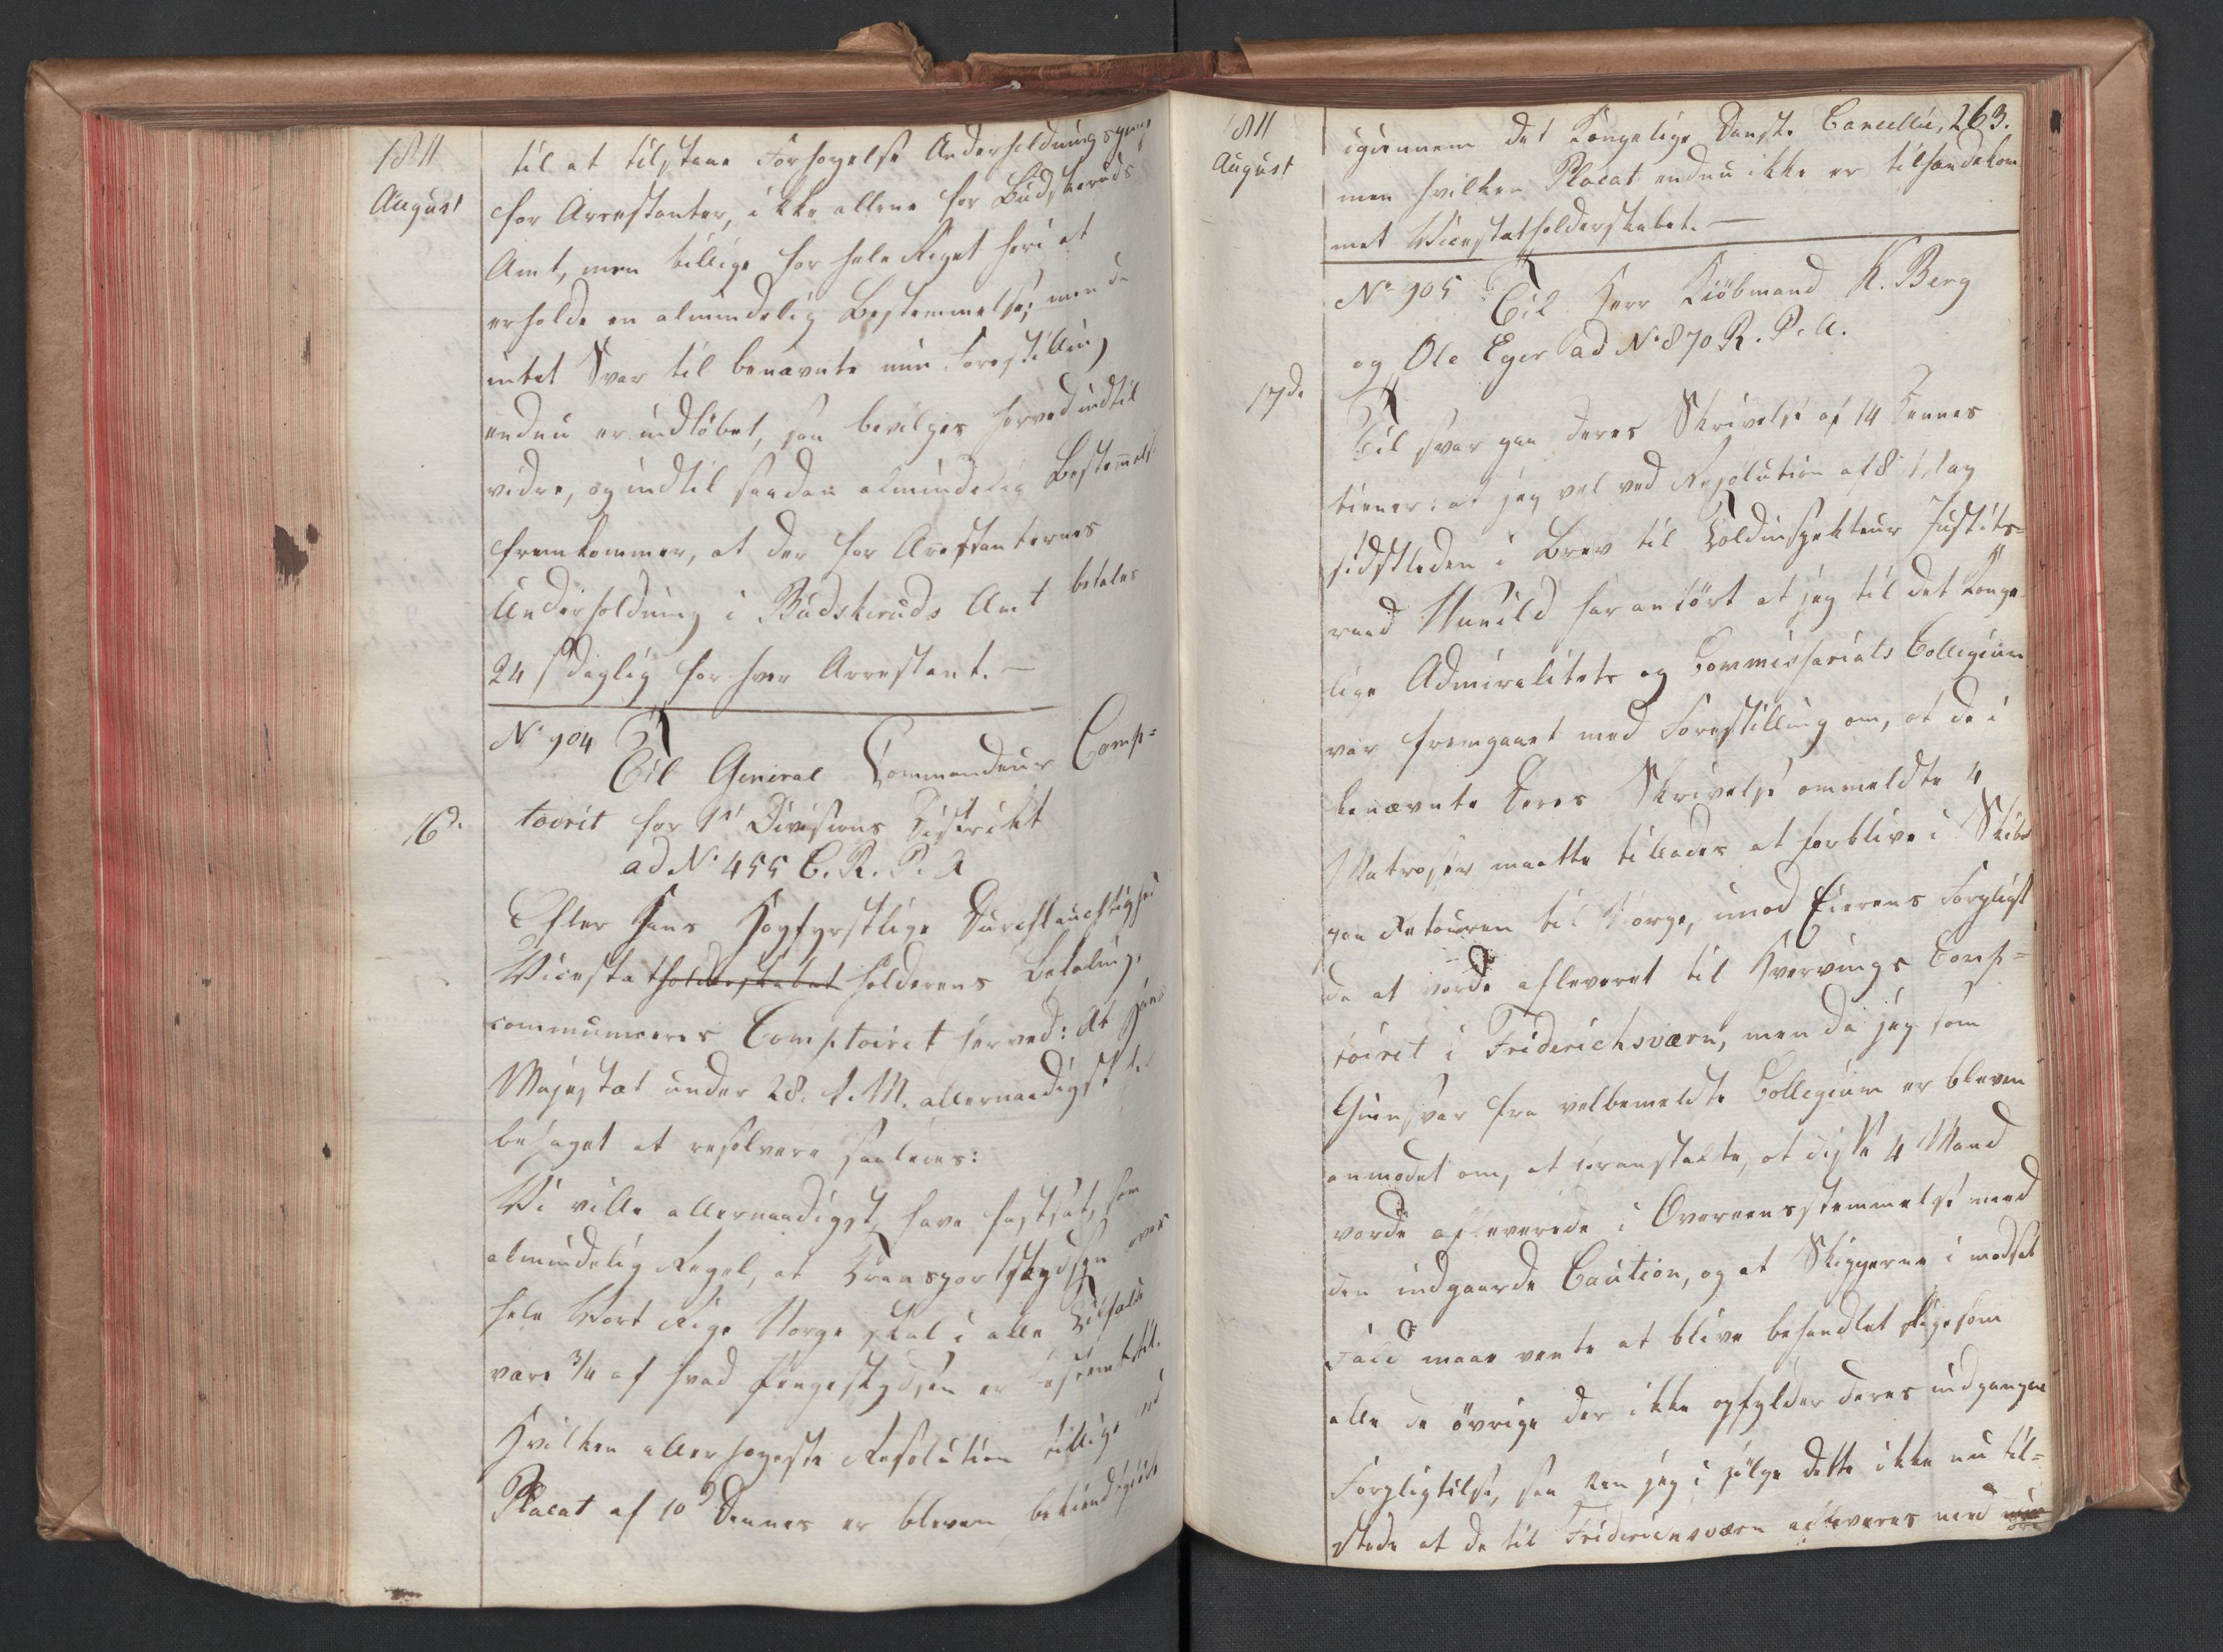 1811
August
til at tilstaae Forhøyelse Underholdningspenge
for Arrestanter, ikke allene for Budskeruds
Amt, men tillige for hele Riget heri at
erholde en almindelig Bestemmelse; men da
intet Svar til benævnte min Forestilling
endnu er indløbet, saa bevilges herved indtil
videre, og indtil saadan almindelig Bestemmelse
fremkommer, at der for Arrestanternes
Underholdning i Budskeruds Amt betales
24 s daglig for hver Arrestant. —
No 904
Til General Commandeur Comp=
16d.
toirit for 1st Divisions District
ad No 455 C. R. P. A
Efter Hans Høyfyrstlige Durchlauchtighed
Vicestatholderskabet holderens Befaling,
communiceres Comptoiret herved: At Hans
Majestæt under 28. f. M. allernaadigst har
behaget at resolvere saaledes:
Vi ville allernaadigst have fastsat, som
almindelig Regel, at Transportskydsen over
hele Vort Rige Norge skal i alle Tilfælde
være 3/4 af hvad Pengeskydsen er
Hvilken allerhøyeste Resolution tillige ved
Placat af 10d Dennes er bleven bekiendtgiort
1811
August
igiennem det Kongelige Danske Cancellie, 263.
men hvilken Placat endnu ikke er tilhændekom
met Vicestatholderskabet. —
No 905 Til Herr Kiøbmand K. Berg
og Ole Eger ad No 870 R. P. A.
17d.
Til Svar paa Deres Skrivelse af 14 Dennes
tiener: at jeg vel ved Resolution af 8 May
sidstleden i Brev til Toldinspekteur Justits=
raad Hunild har anført at jeg til det Konge
lige Admiralitets og Commissariats Collegium
var fremgaaet med Forestilling om, at de i
benævnte Deres Skrivelse ommeldte 4
Matroser maatte tillades at forblive i Skibet
paa Retouren til Norge, imod Eierens Forpligt
de at vorde afleveret til Hvervings Comp=
toiret i Friderichsværn, men da jeg som
Giensvar fra velbemeldte Collegium er bleven
anmodet om, at foranstalte, at disse 4 Mand
vorde afleverede i Overeensstemmelse med
den indgaaede Caution, og at Skipperne i modsat
Fald maae vente at blive behandlet ligesom
alle de øvrige der ikke opfylder deres indgangne
Forpligtelse, saa kan jeg i følge dette ikke nu til=
stede at de til Friderichsværn afleveres med